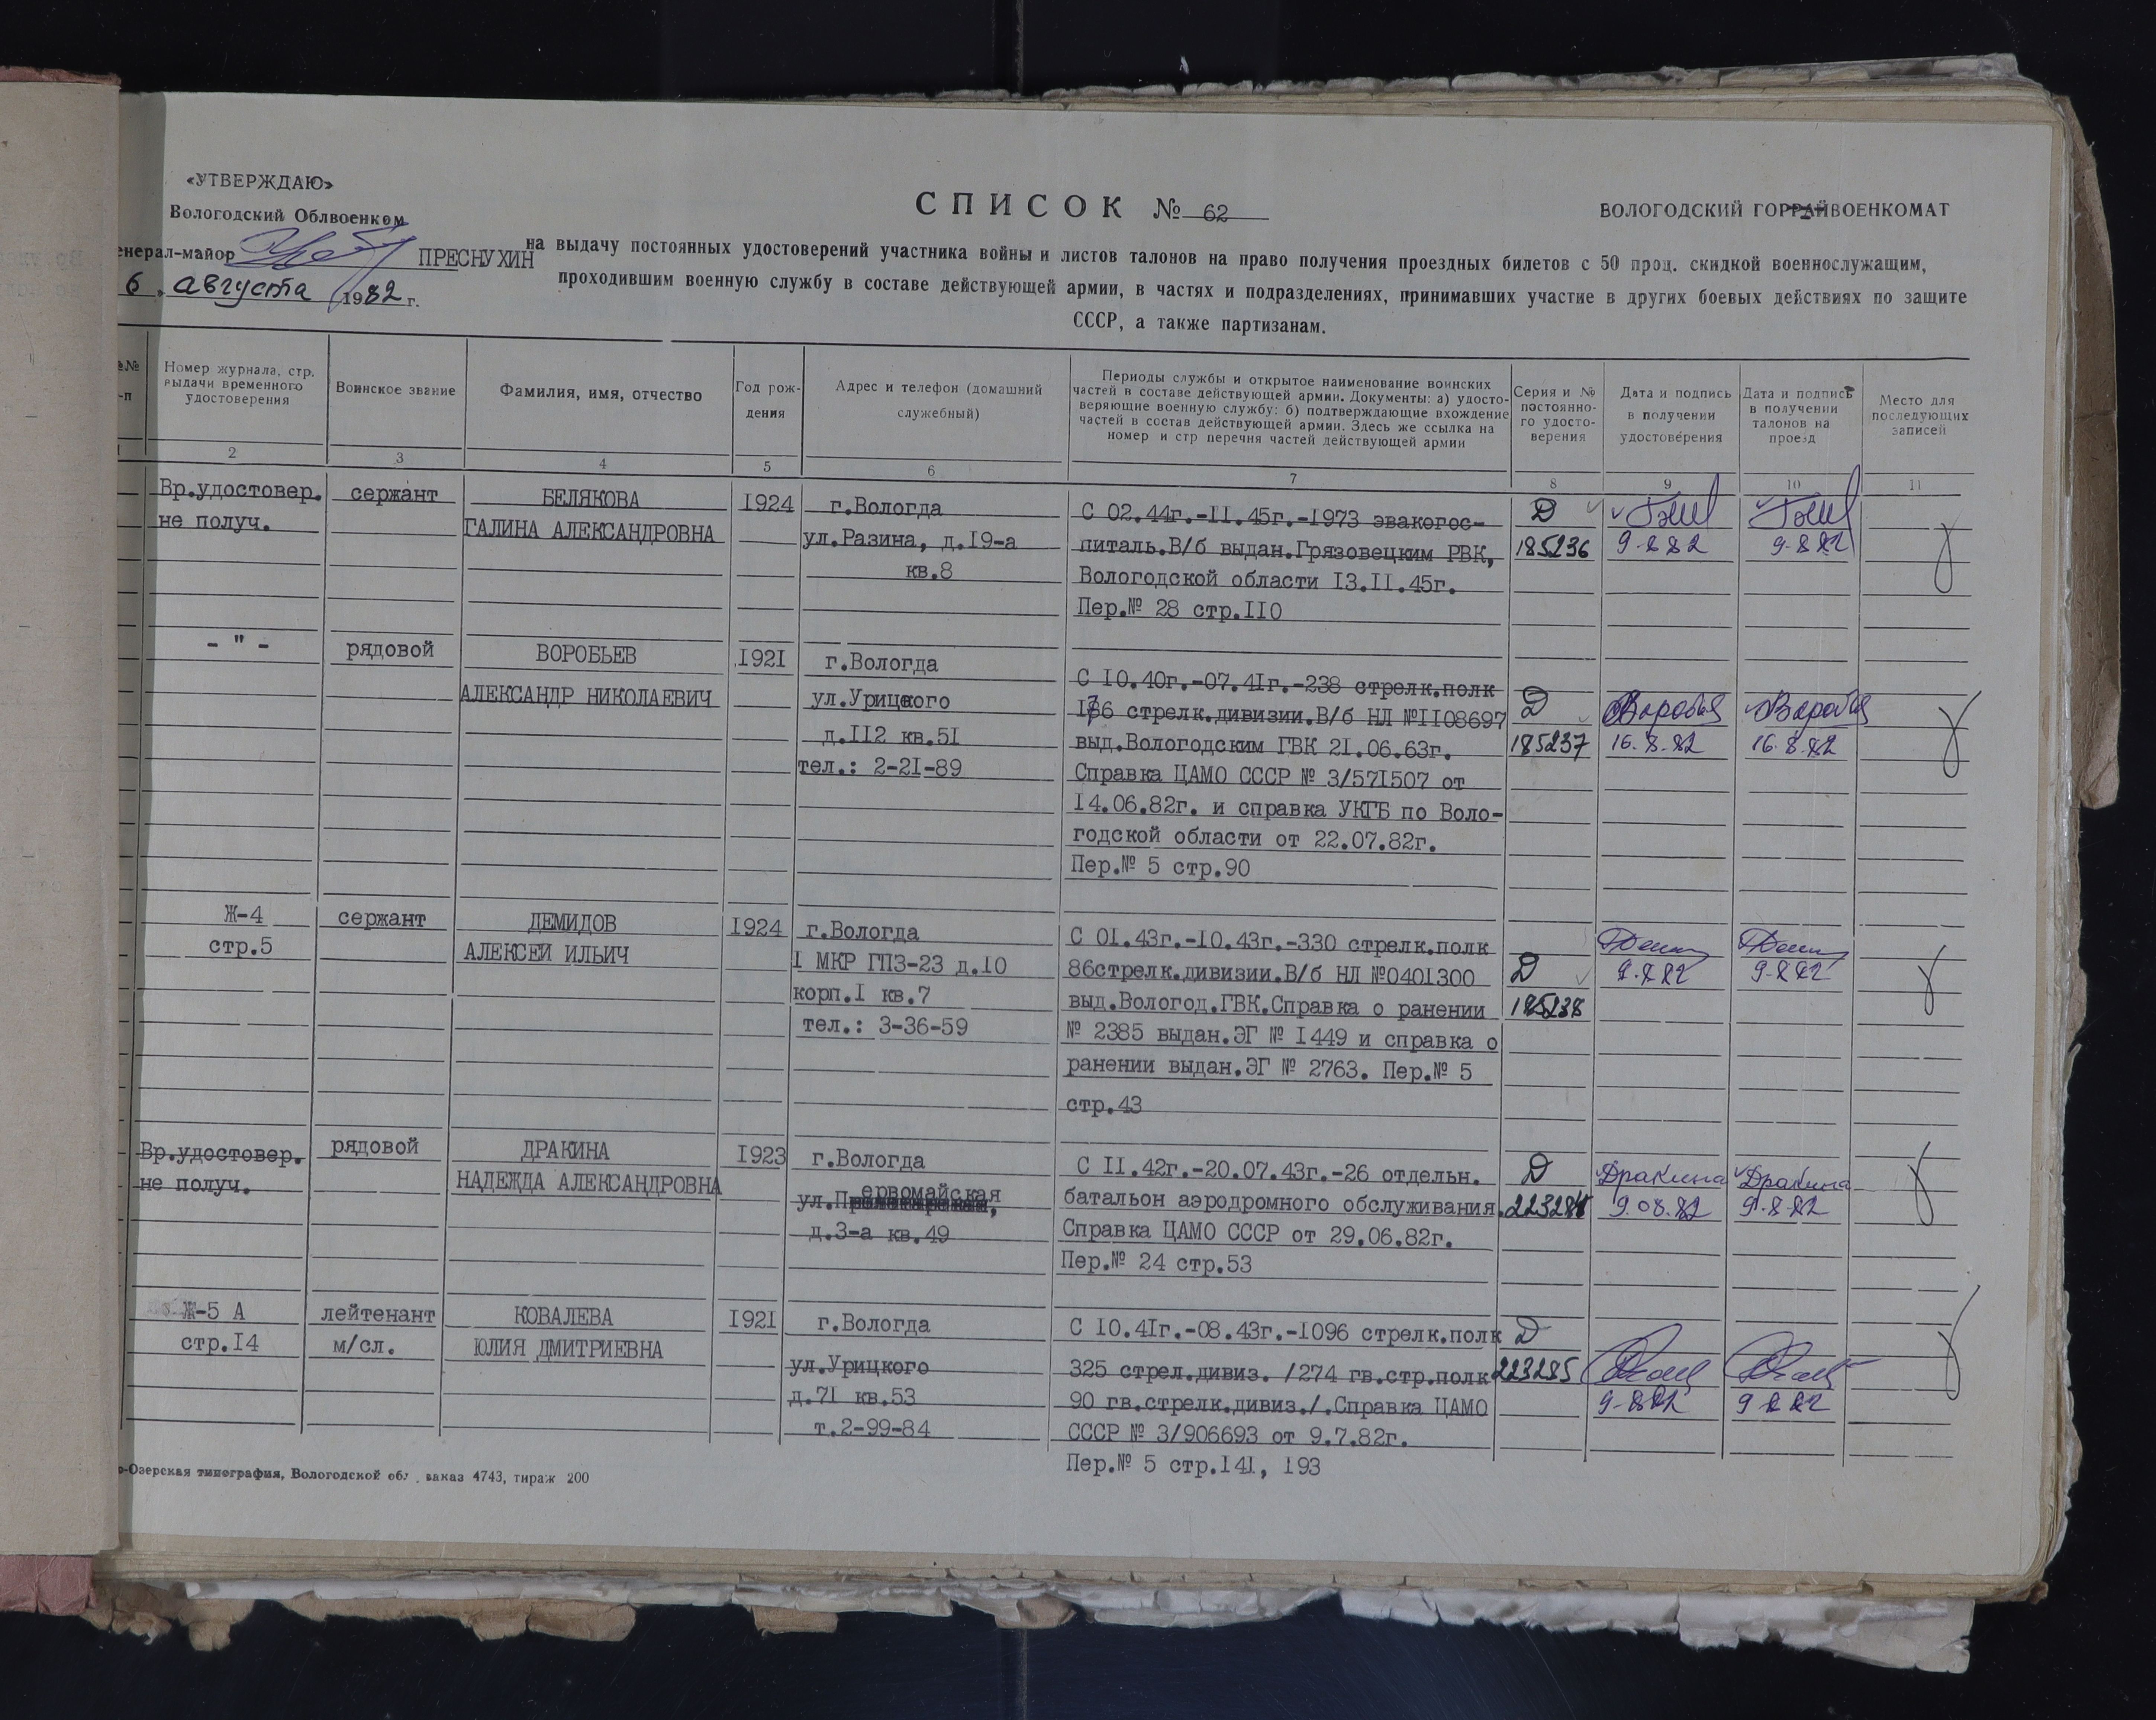 «УТВЕРЖДАЮ»
Вологодский Облвоенком
енерал-майор ПРЕСНУХИН
6 августа 1982 г.
СПИСОК № 62
ВОЛОГОДСКИЙ ГОРРАЙВОЕНКОМАТ
на выдачу постоянных удостоверений участника войны и листов талонов на право получения проездных билетов с 50 проц. скидкой военнослужащим,
проходившим военную службу в составе действующей армии, в частях и подразделениях, принимавших участие в других боевых действиях по защите
СССР, а также партизанам.
№№
-п
Номер журнала, стр.
выдачи временного
удостоверения
Воинское звание
Фамилия, имя, отчество
Год рож-
дения
Адрес и телефон (домашний
служебный)
Периоды службы и открытое наименование воинских
частей в составе действующей армии. Документы: а) удосто-
веряющие военную службу: б) подтверждающие вхождение
частей в состав действующей армии. Здесь же ссылка на
номер и стр перечня частей действующей армии
Серия и №
постоянно-
го удосто-
верения
Дата и подпись
в получении
удостоверения
Дата и подпись
в получении
талонов на
проезд
Место для
последующих
записей
1 2 3 4 5 6 7 8 9 10 11
Вр.удостовер.
не получ.
сержант
БЕЛЯКОВА
ГАЛИНА АЛЕКСАНДРОВНА
1924
г.Вологда
ул.Разина, д.19-а
кв.8
С 02.44г.-11.45г.-1973 эвакогос-
питаль.В/б выдан.Грязовецким РВК,
Вологодской области 13.11.45г.
Пер.№ 28 стр.110
Д
185236
9.8.82
9.8.82
- " -
рядовой
ВОРОБЬЕВ
АЛЕКСАНДР НИКОЛАЕВИЧ
1921
г.Вологда
ул.Урицкого
д.112 кв.51
тел.: 2-21-89
С 10.40г.-07.41г.-238 стрелк.полк
186 стрелк.дивизии.В/б НЛ №1108697
выд.Вологодским ГВК 21.06.63г.
Справка ЦАМО СССР № 3/571507 от
14.06.82г. и справка УКГБ по Воло-
годской области от 22.07.82г.
Пер.№ 5 стр.90
Д
185237
16.8.82
16.8.82
Ж-4
стр.5
сержант
ДЕМИДОВ
АЛЕКСЕЙ ИЛЬИЧ
1924
г.Вологда
1 МКР ГПЗ-23 д.10
корп.1 кв.7
тел.: 3-36-59
С 01.43г.-10.43г.-330 стрелк.полк
86стрелк.дивизии.В/б НЛ №0401300
выд.Вологод.ГВК.Справка о ранении
№ 2385 выдан.ЭГ № 1449 и справка о
ранении выдан.ЭГ № 2763. Пер.№ 5
стр.43
Д
185238
9.8.82
9.8.82
Вр.удостовер.
не получ.
рядовой
ДРАКИНА
НАДЕЖДА АЛЕКСАНДРОВНА
1923
г.Вологда
ул.Первомайская
д.3-а кв.49
С 11.42г.-20.07.43г.-26 отдельн.
батальон аэродромного обслуживания.
Справка ЦАМО СССР от 29.06.82г.
Пер.№ 24 стр.53
Д
223284
Дракина
9.08.82
Дракина
9.8.82
Ж-5 А
стр.14
лейтенант
м/сл.
КОВАЛЕВА
ЮЛИЯ ДМИТРИЕВНА
1921
г.Вологда
ул.Урицкого
д.71 кв.53
т.2-99-84
С 10.41г.-08.43г.-1096 стрелк.полк
325 стрел.дивиз. /274 гв.стр.полк
90 гв.стрелк.дивиз./.Справка ЦАМО
СССР № 3/906693 от 9.7.82г.
Пер.№ 5 стр.141, 193
Д
223285
9.8.82
9.8.82
о-Озерская типография, Вологодской обл. заказ 4743, тираж 200